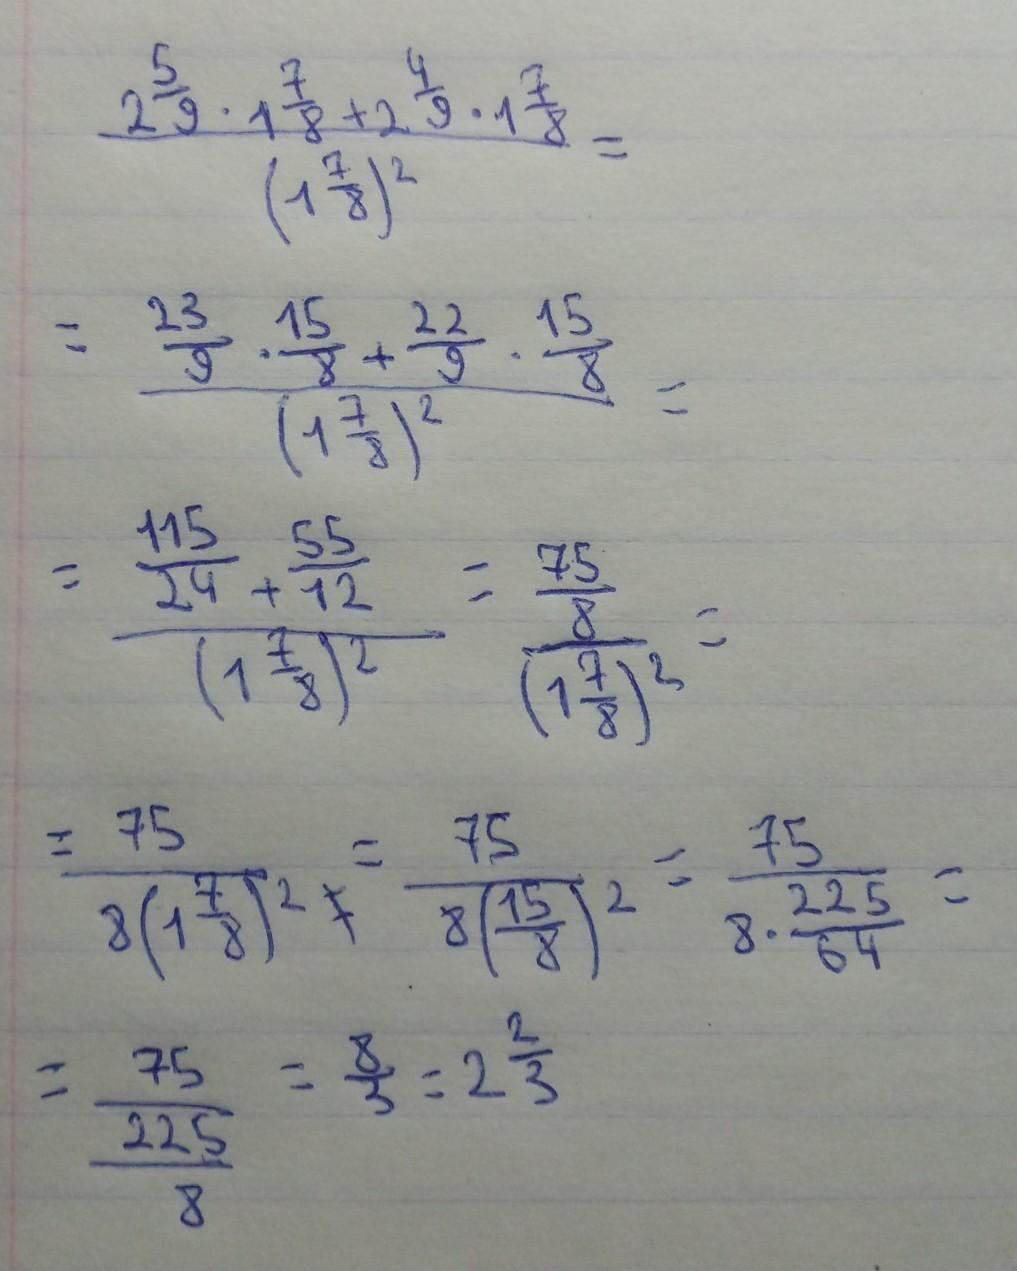 2 5/9 · 1 7/8 + 2 4/9 · 1 7/8 / (1 7/8)² =
= 23/9 · 15/8 + 22/9 · 15/8 / (1 7/8)² =
= 115/24 + 55/12 / (1 7/8)² = 75/8 / (1 7/8)² =
= 75 / 8(1 7/8)² = 75 / 8(15/8)² = 75 / 8 · 225/64 =
= 75 / 225/8 = 8/3 = 2 2/3